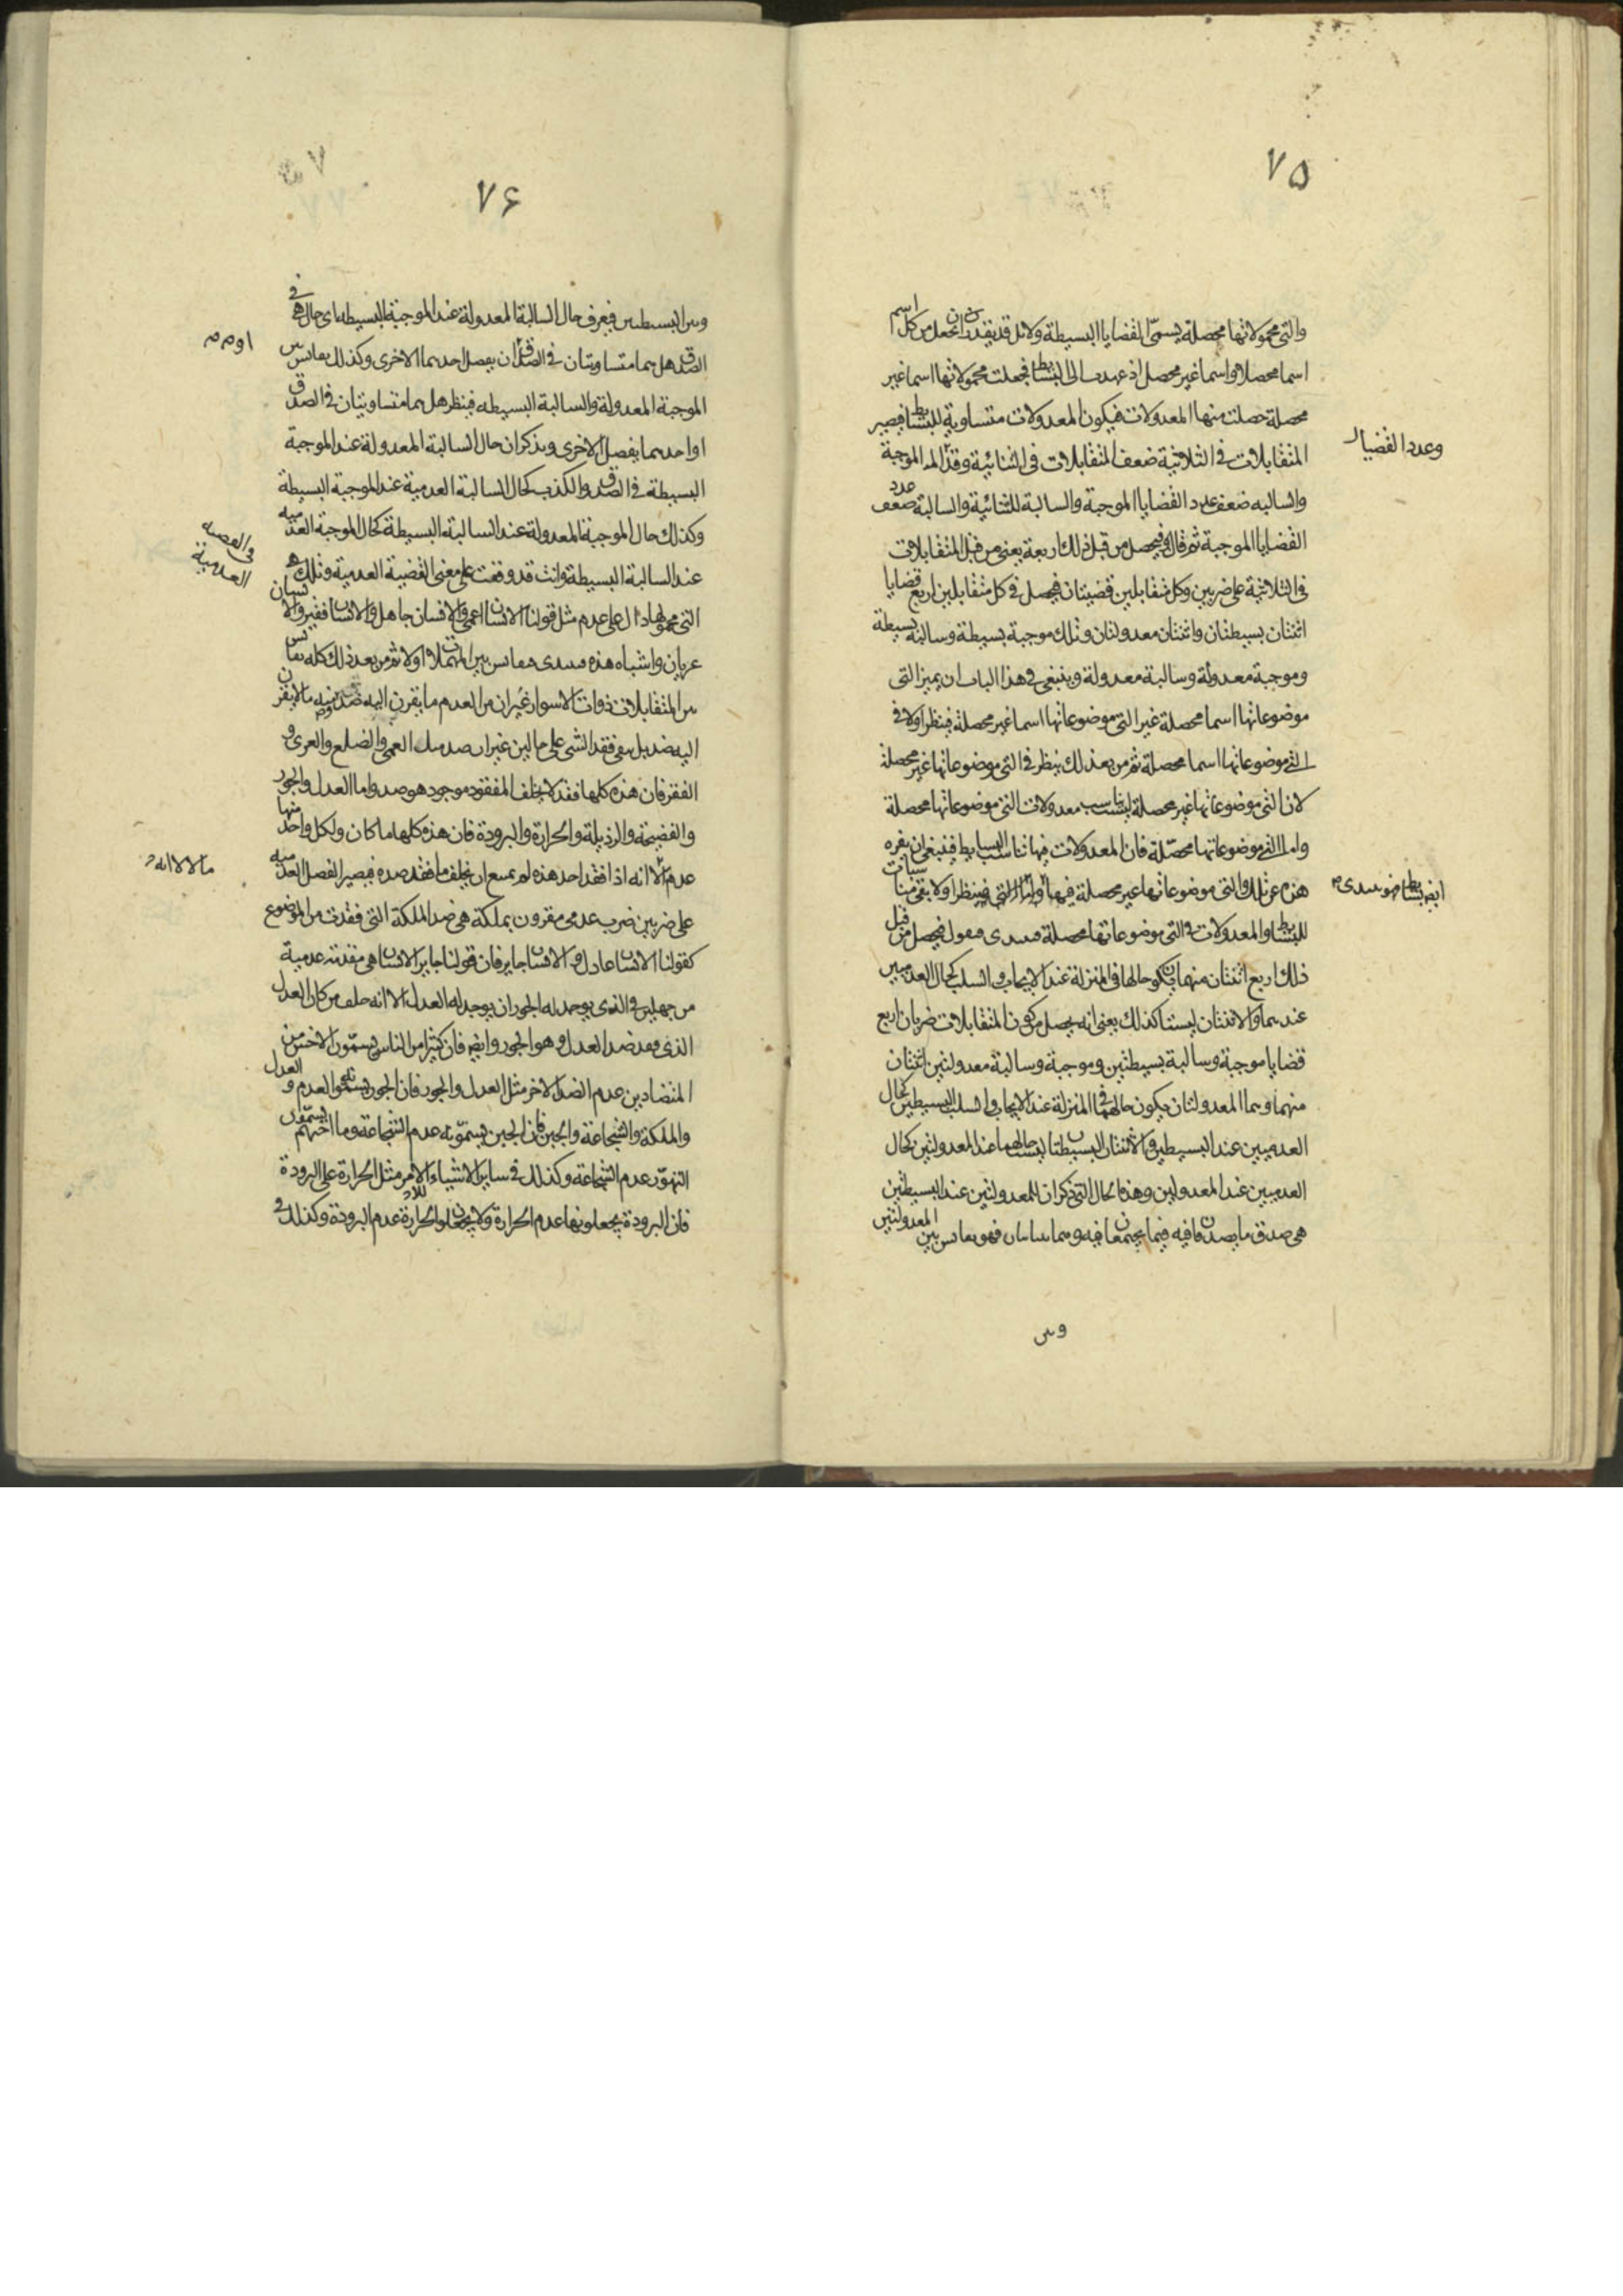 ٧٥
والتى محمولاتها محصلة يسمى القضايا البسيطة ولانك قد يقدر ان تجعل من كل اسم
اسما محصلا واسما غير محصل اذ عمدت الى البسائط فجعلت محمولاتها اسما غير
محصلة حصلت منها المعدولات فيكون المعدولات متساوية للبسائط فيصير
المتقابلات فى الثلاثية ضعف المتقابلات فى الثنائية وعدد القضايا الموجبة
والسالبه ضعف عدد القضايا الموجبة والسالبة للثنائية والسالبة ضعف عدد
القضايا الموجبة ثم قال فيحصل من قبل ذلك اربعة يعنى من قبل المتقابلات
فى الثلاثية على ضربين وكل متقابلين قضيتان فيحصل فى كل متقابلين اربع قضايا
اثنتان بسيطتان واثنتان معدولتان وتلك موجبة بسيطة وسالبة بسيطة
وموجبة معدولة وسالبة معدولة وينبغى فى هذا الباب ان يميز التى
موضوعاتها اسما محصلة غير التى موضوعاتها اسما غير محصلة فينظر اولا فى
التى موضوعاتها اسما محصلة ثم من بعد ذلك ينظر فى التى موضوعاتها غير محصلة
لان التى موضوعاتها غير محصلة ليس تناسب معدولات التى موضوعاتها محصلة
واما التى موضوعاتها محصلة فان المعدولات فيها تناسب البسايط فينبغى ان يفرد
هذه عن تلك والتى موضوعاتها غير محصلة فيها فينظر اولا
للبسائط والمعدولات فى التى موضوعاتها محصلة فيحصل من قبل
ذلك اربع اثنتان منهما يكون حالهما فى المنزلة عند الايجاب والسلب كحال العدميين
عندهما والاثنتان ليستا كذلك يعنى انه يحصل من كون المتقابلات ضربان اربع
قضايا موجبة وسالبة بسيطتين وموجبة وسالبة معدولتين اثنتان
منهما وهما المعدولتان يكون حالهما فى المنزلة عند الايجاب والسلب البسيطين كحال
العدميين عند البسيطين والاثنتان البسيطتان ليست حالهما عند المعدولتين كحال
العدميين عند المعدولين وهذه الحال التى ذكر ان للمعدولتين عند البسيطتين
هى صدق ما يصدقان فيه فيما يجتمعان فيه وفيما فهو يقايس بين المعدولتين
وبين
وعدد القضايا
٧٦
وبين البسيطتين فيعرف حال السالبة المعدولة عند الموجبة البسيطة اى حال هى فى
الصدق هل هما متساويتان فى الصدق او يفضل احدهما الاخرى وكذلك يقايس بين
الموجبة المعدولة والسالبة البسيطه فينظر هل هما متساويتان فى الصدق
او احدهما يفضل الاخرى ويذكر ان حال السالبة المعدولة عند الموجبة
البسيطة فى الصدق والكذب كحال السالبة العدمية عند الموجبة البسيطة
وكذلك حال الموجبة المعدولة عند السالبة البسيطة كحال الموجبة العدميه
عند السالبة البسيطة وانت قد وقعت على معنى القضية العدمية وتلك هى
التى محمولها دال على عدم مثل قولنا الانسان اعمى والانسان جاهل والانسان فقير والانسان
عريان واشباه هذه يقايس بين المهملات اولا ثم من بعد ذلك كله يقايس
بين المتقابلات ذوات الاسوار غير ان من العدم ما يقرن اليه ضد ومنه ما لا يقرن
اليه ضد بل يبقى فقد الشى على حاله من غير ان العمى والصلع والعرى و
الفقر فان هذه كلها فقد لا يخلف المفقود موجود هو ضد واما العدل والجور
والفضيحة والرذيلة والحرارة والبرودة فان هذه كلها ما كان ولكل واحد منها
عدم الا انه اذا فقد احد هذه لم يمتنع ان يخلف ما فقد ضده فيصير الفصل العدميه
على ضربين ضرب عدمى مقرون بملكة هى ضد الملكة التى فقدت من الموضوع
كقولنا الانسان عادل والانسان جاير فان قولنا جاير الانسان هى مقدمة عدمية
من جهة ان الذى يوجد له الجور ان يوجد له العدل الا انه خلف مكان العدل
الذى فقد ضد العدل وهو الجور وايض فان كثيرا من الناس يسمون الاخس من
المتضادين عدم الضد الاخر مثل العدل والجور فان الجور يسمونه العدم و العدل
الملكة والشجاعة والجبن فان الجبن يسمونه عدم الشجاعة وما احد منهم يسمون
التهور عدم الشجاعة وكذلك فى ساير الاشياء الاخر مثل الحرارة على البرودة
فان البرودة يجعلونها عدم الحرارة ولا يجعلون الحرارة عدم البرودة وكذلك فى
فى القضيه
العدمية